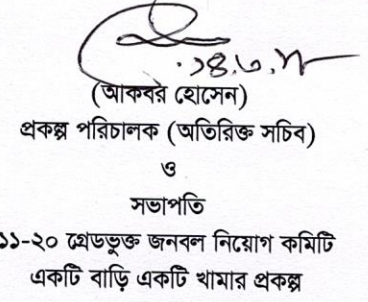 ১৪.৬.২১
(আকবর হোসেন)
প্রকল্প পরিচালক (অতিরিক্ত সচিব)
ও
সভাপতি
১১-২০ গ্রেডভুক্ত জনবল নিয়োগ কমিটি
একটি বাড়ি একটি খামার প্রকল্প